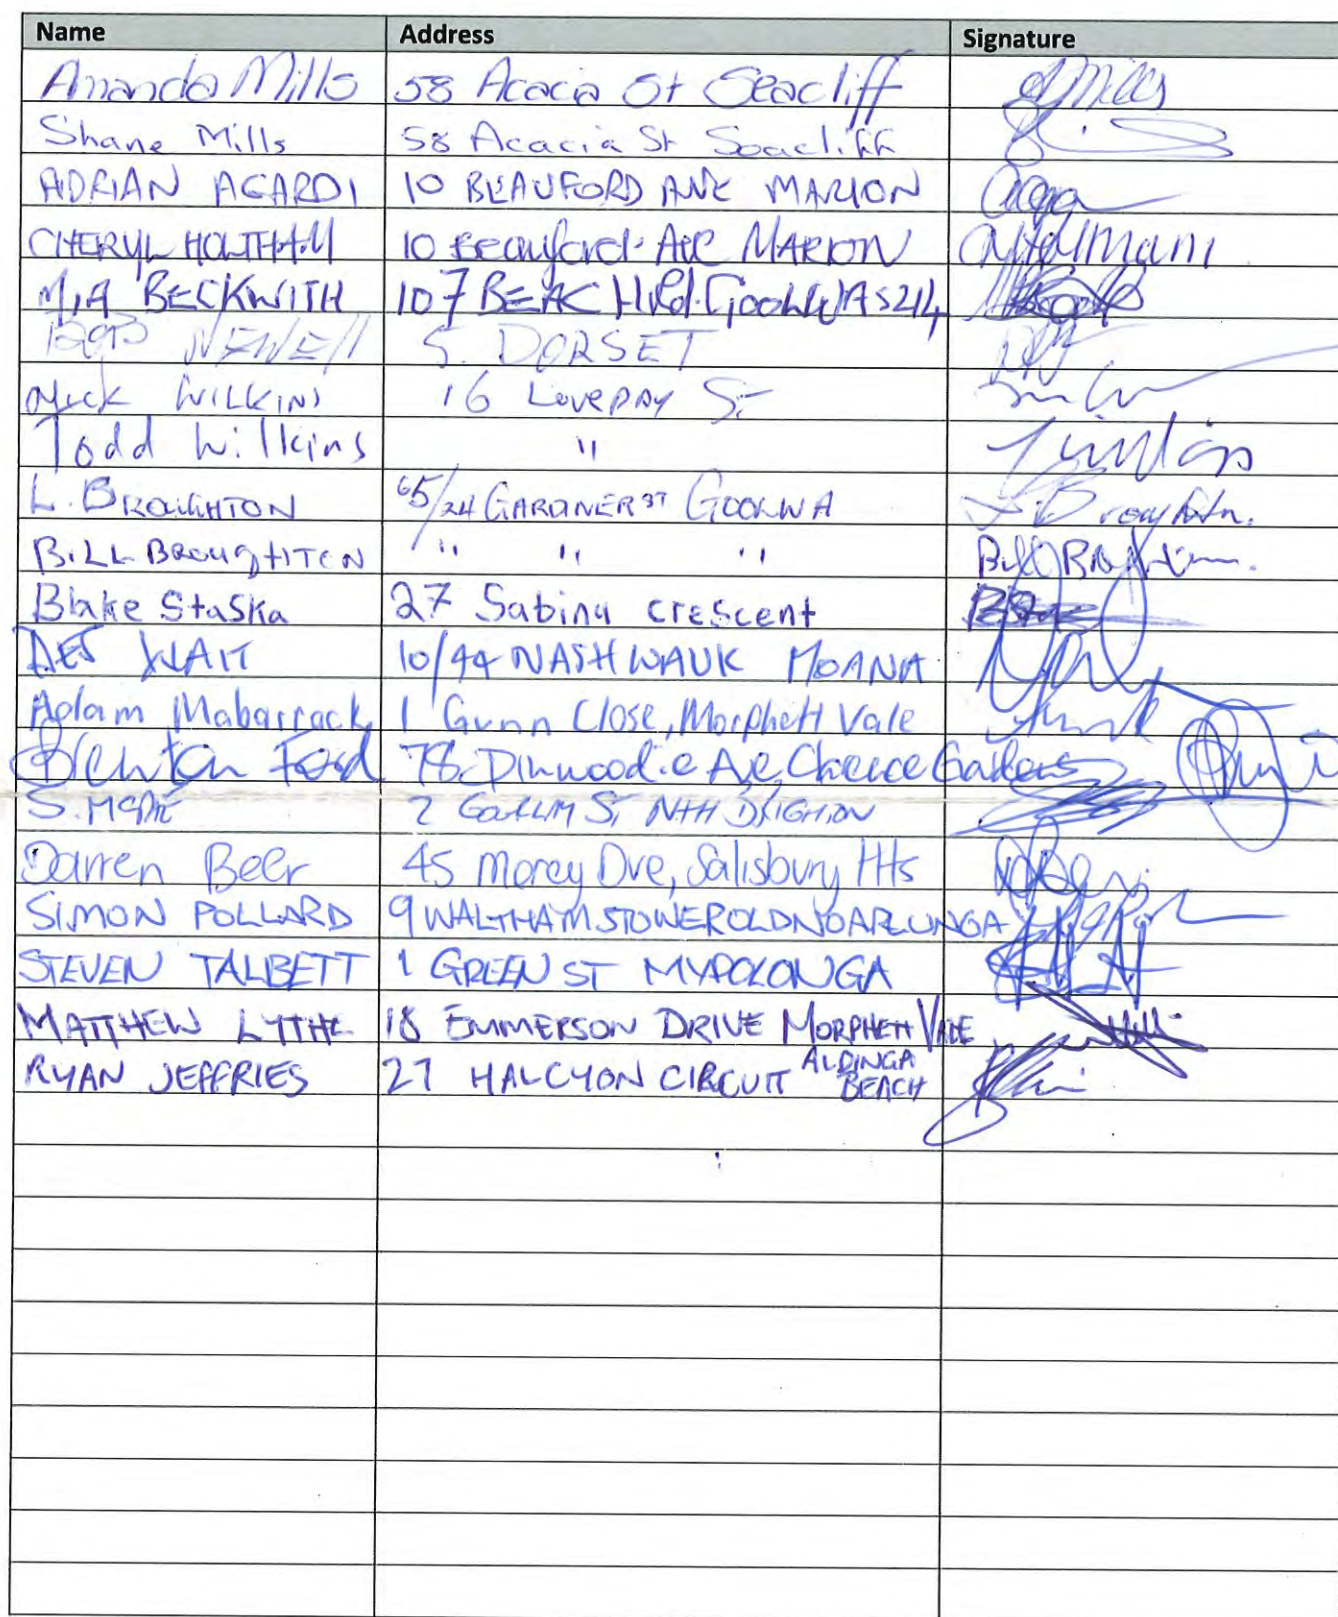 Name Address Signature
Amanda Mills 58 Acacia St Seacliff AMills
Shane Mills 58 Acacia St Seacliff
ADRIAN AGARDI 10 BEAUFORD AVE MARION
CHERYL HOLTHAM 10 Beauford Ave MARION
M.A BECKWITH 107 BEACH Rd. GOOLWA 5214
NEWELL 5. DORSET
Mick WILKINS 16 LOVEDAY ST
Todd Wilkins "
L. BROUGHTON 65/24 GARDNER ST GOOLWA L. Broughton.
BILL BROUGHTON " " " Bill
Blake Staska 27 Sabina crescent
WAIT 10/44 NASHWAUK MOANA
Adam Mabarrack 1 Gunn Close, Morphett Vale
Brenton Ford 78. Dinwoodie Ave, Clarence Gardens
S. 2 ST NTH BRIGHTON
Darren Beer 45 Morey Dve, Salisbury Hts
SIMON POLLARD 9 WALTHAMSTOWE R OLD NOARLUNGA
STEVEN TALBETT 1 GREEN ST MYPOLONGA
MATTHEW LYTHE 18 EMMERSON DRIVE MORPHETT VALE
RYAN JEFFRIES 27 HALCYON CIRCUIT ALDINGA BEACH